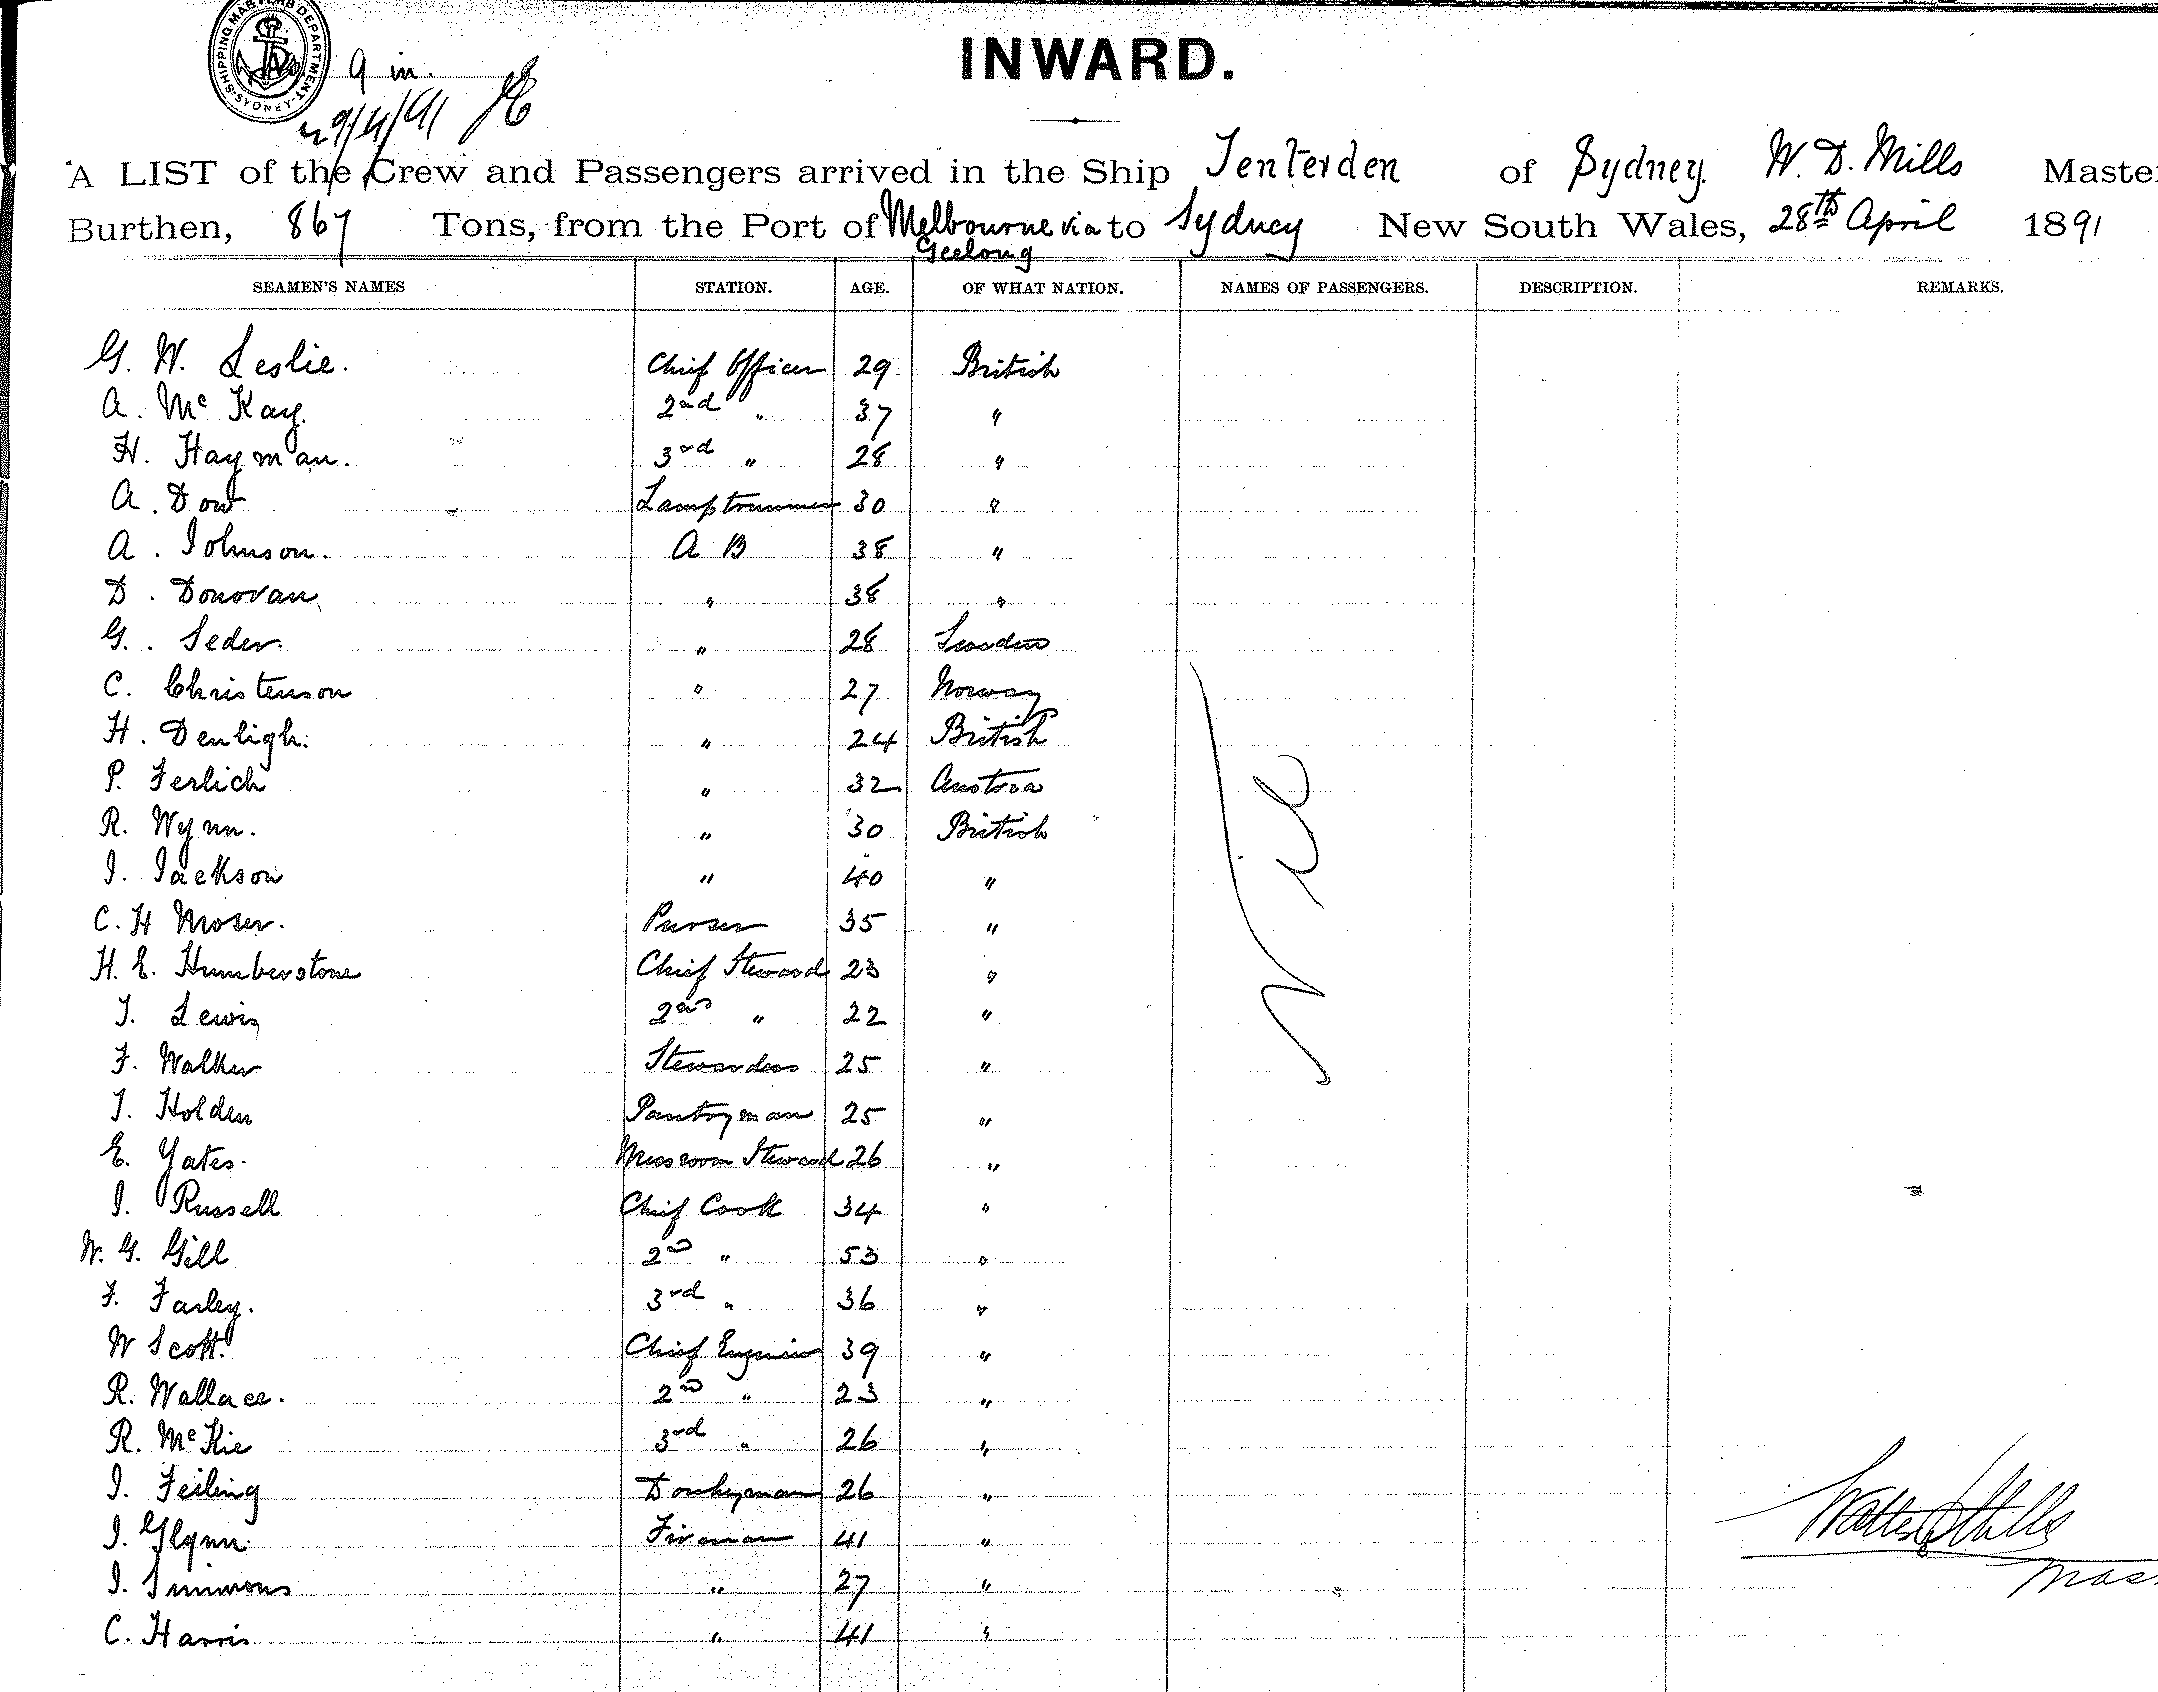 SHIPPING MASTERS DEPARTMENT. SYDNEY
9 in.
29/4/91
INWARD.
A LIST of the Crew and Passengers arrived in the Ship Tenterden of Sydney. W. D. Mills Master
Burthen, 867 Tons, from the Port of Melbourne via Geelong to Sydney New South Wales, 28th April 1891
SEAMEN'S NAMES STATION. AGE. OF WHAT NATION. NAMES OF PASSENGERS. DESCRIPTION. REMARKS.
G. W. Leslie. Chief Officer 29 British
A. McKay. 2nd " 37 "
H. Hayman. 3rd " 28 "
A. Dow Lamptrimmer 30 "
A. Johnson. A B 38 "
D. Donovan. " 38 "
G. Seder. " 28 Sweden
C. Christenson " 27 Norway
H. Denligh. " 24 British
P. Ferlich " 32 Austria
R. Wynn. " 30 British
J. Jackson " 40 "
C. H Moser. Purser 35 "
H. E. Humberstone Chief Steward 23 "
T. Lewis 2nd " 22 "
F. Walker Stewardess 25 "
T. Holden Pantryman 25 "
E. Yates. Messroom Steward 26 "
J. Russell Chief Cook 34 "
W. G. Gill 2nd " 53 "
F. Farley. 3rd " 36 "
W Scott. Chief Engineer 39 "
R. Wallace. 2nd " 23 "
R. McKie 3rd " 26 "
J. Feiling Donkeyman 26 "
J. Glynn. Fireman 41 "
J. Simmons " 27 "
C. Harris " 41 "
Nil
Walter D Mills
Mas